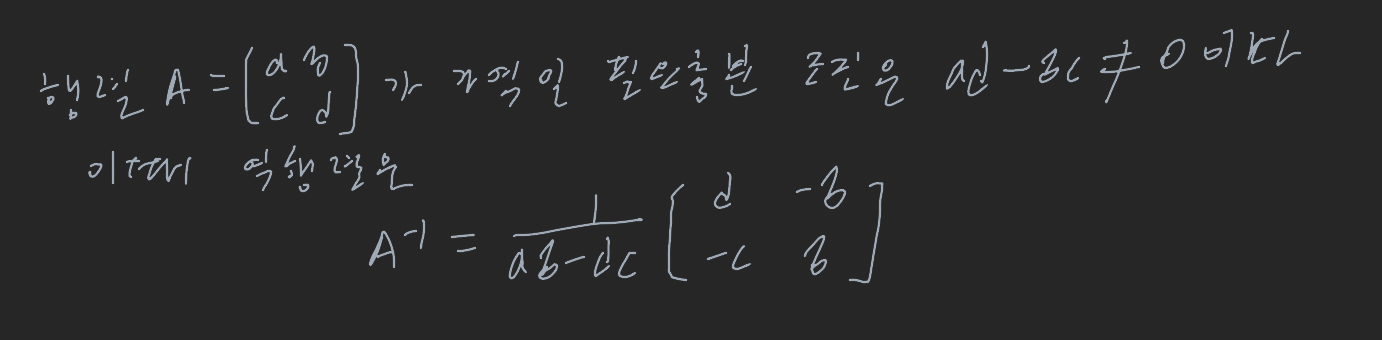 행렬 A = [a b
c d]가 가역일 필요충분 조건은 ad - bc ≠ 0 이다
이때 역행렬은
A⁻¹ = 1/(ab-dc) [d -b
-c b]